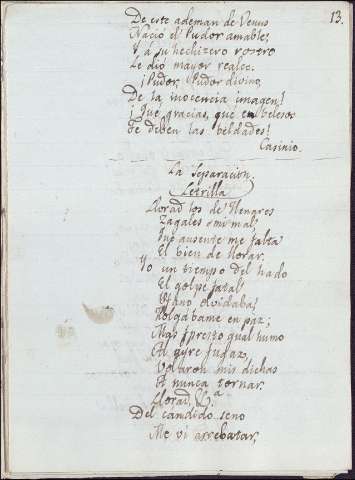 13.
De este ademan de Venus
Nació el Pudor amable;
Y á su hechizero rostro
Le dió mayor realce.
¡Pudor, Pudor divino,
De la inocencia imagen!
¡Que gracias, que embelesos
Te deben las beldades!
Casinio.
La Separacion.
Letrilla
Llorad los de Henares
Zagales mi mal,
Que ausente me falta
El bien de llorar.
Yo un tiempo del hado
El golpe fatal
Ufano olvidaba,
Holgábame en paz;
Mas presto qual humo
Al ayre fugaz,
Volaron mis dichas
A nunca tornar.
Llorad, &.a
Del candido seno
Me vi arrebatar,